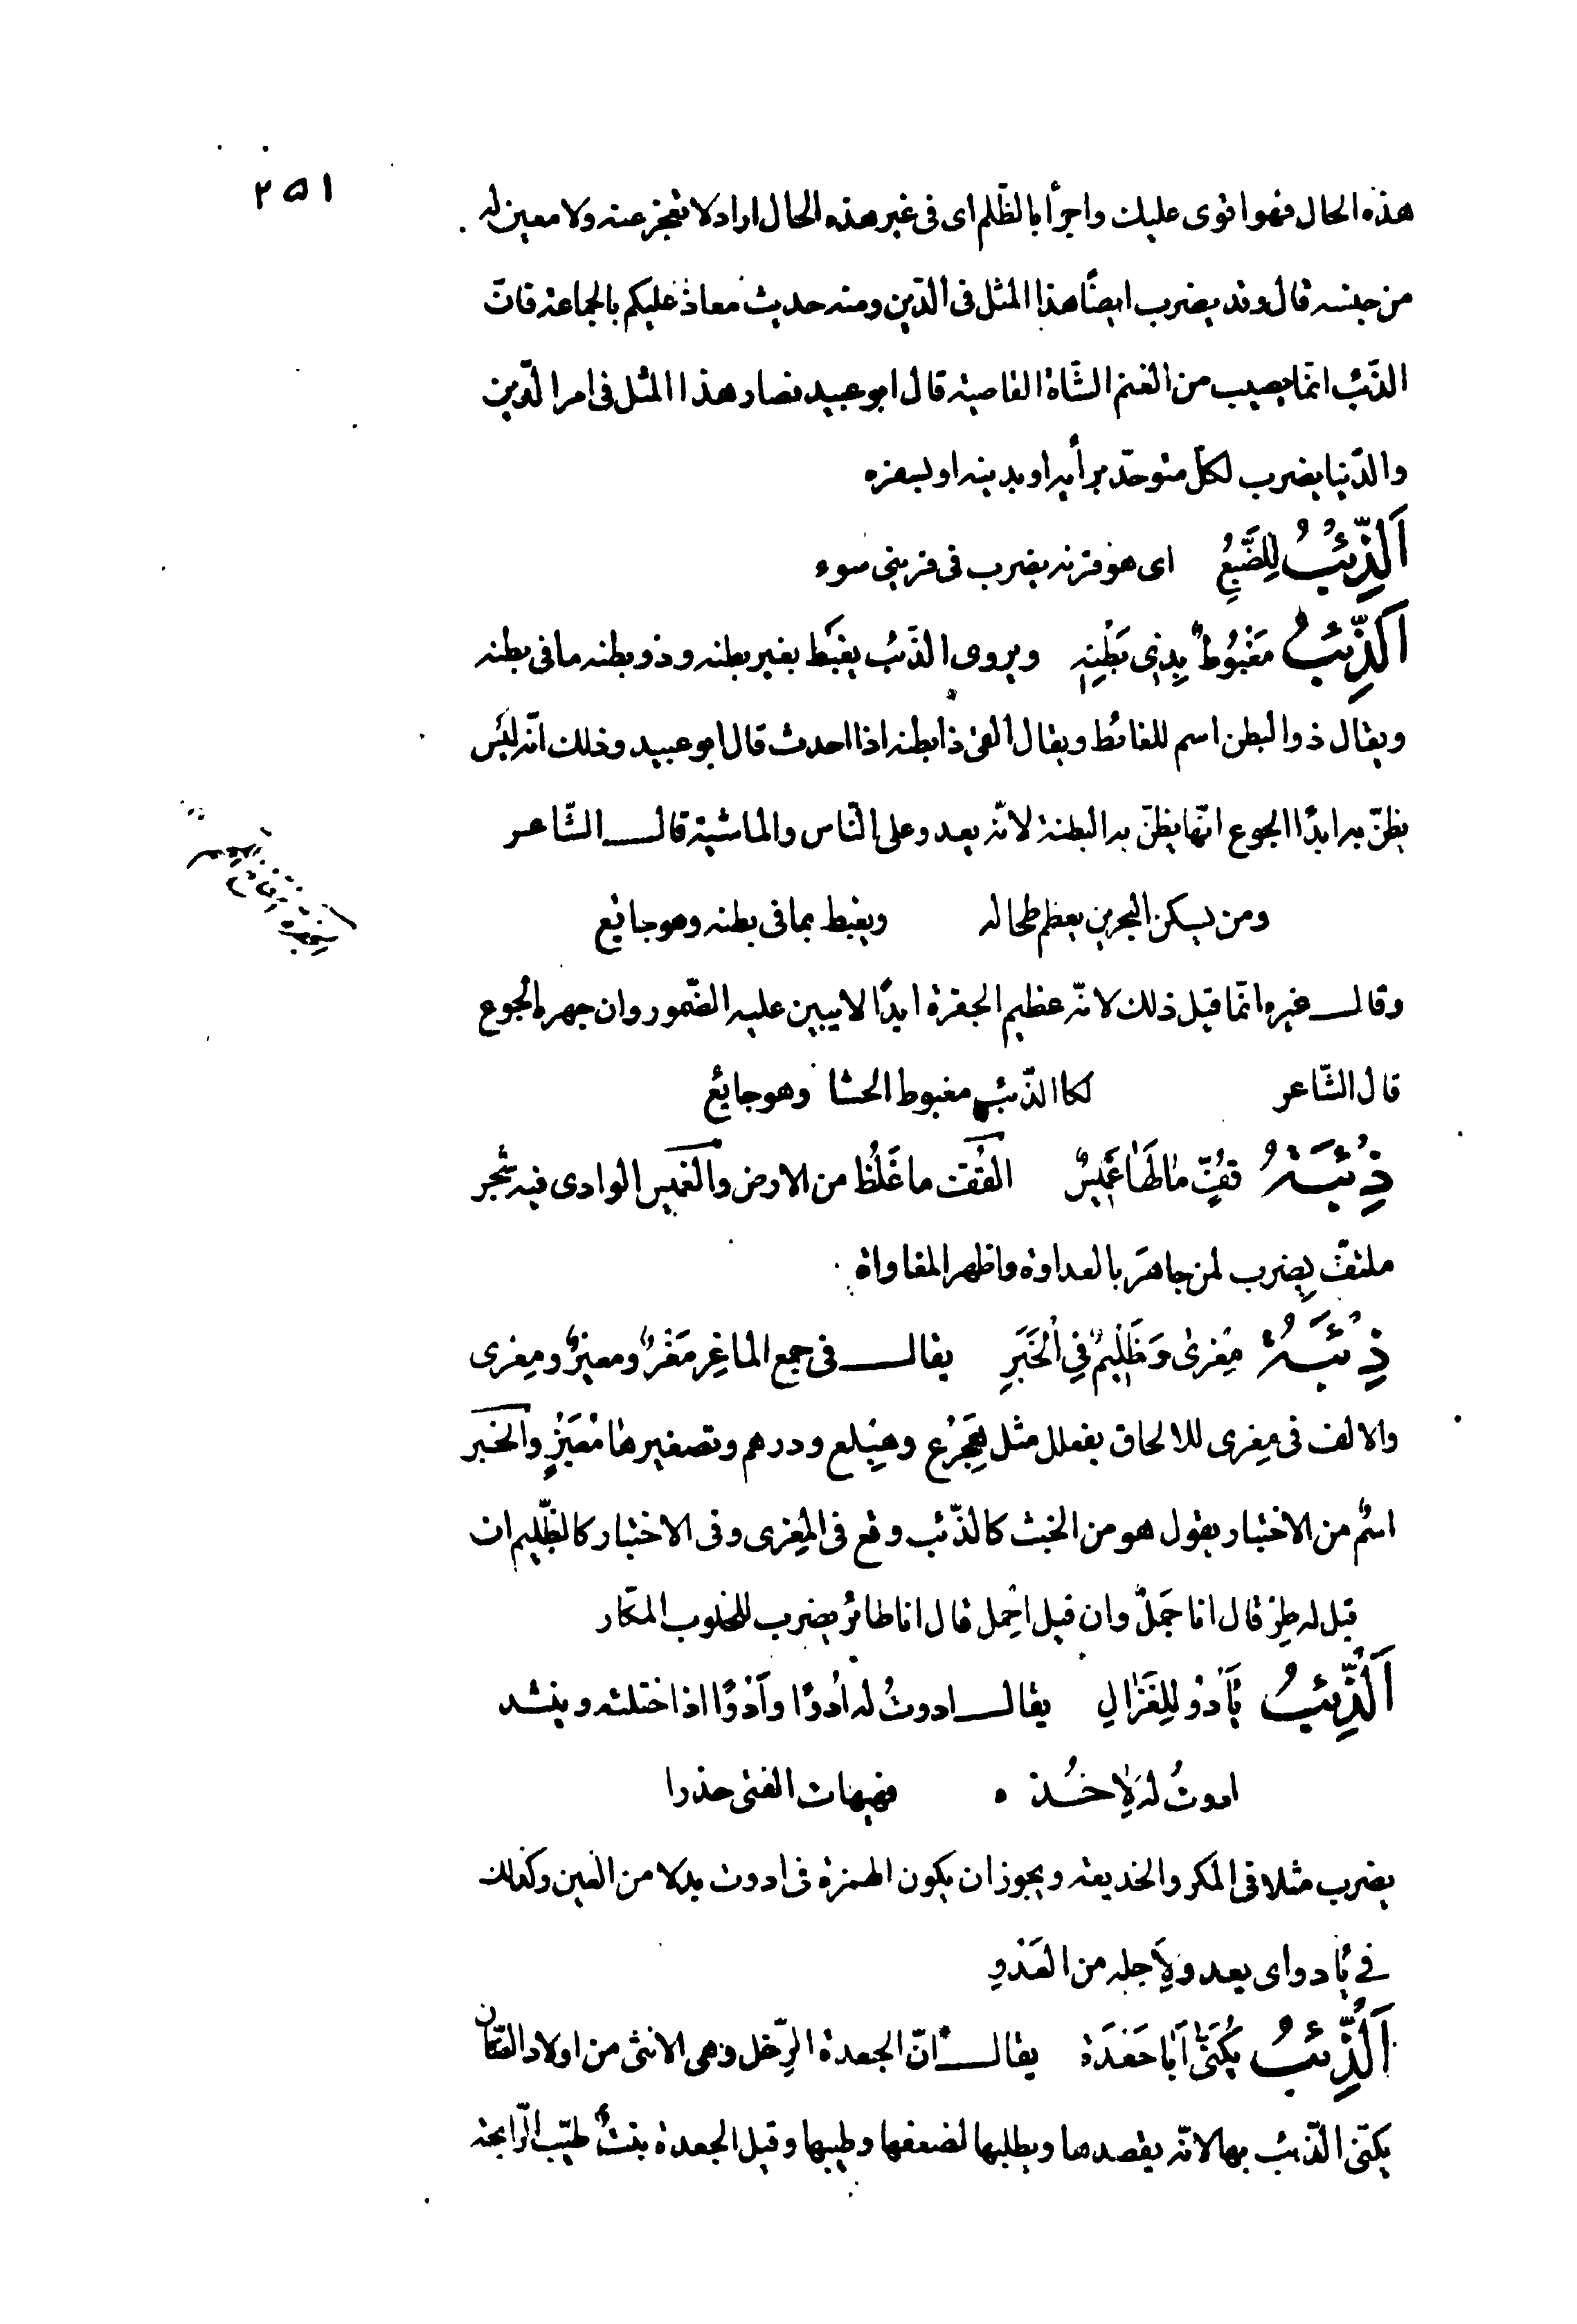 ٢٥١
هذه الحال فهو اقوى عليك واجرأ بالظّلم اى فى غير هذه الحال اراد لا تعجز عنه ولا معين له
من جنسه قال وقد يضرب ايضًا هذا المثل فى الدّين ومنه حديث معاذ عليكم بالجماعة فانّ
الذّئب انّما يصيب من الغنم الشّاة القاصية قال ابو عبيد فصار هذا المثل فى امر الدّين
والدّنيا يضرب لكلّ متوحّد برأيه او بدينه او بسفره
اَلذِّئْبُ لِلضَّبُعِ اى هو قرنه يضرب فى قرينى سوء
اَلذِّئْبُ مَغْبُوطٌ بِذِى بَطْنِهِ ويروى الذّئب يغبَط بغير بطنه وذو بطنه ما فى بطنه
ويقال ذو البطن اسم للغائط ويقال القى ذا بطنه اذا احدث قال ابو عبيد وذلك انّه ليْس
يظنّ به ابدًا الجوع انّما يظنّ به البطنة لانّه يعدو على النّاس والماشية قال الشّاعر
ومن يسكن البحرين يعظم طحاله ويغبط بما فى بطنه وهو جائع
وقال غيره انّما قيل ذلك لانّه عظيم الجفرة ابدًا لا يبين عليه الضّمور وان جهده الجوع
قال الشّاعر لكا الذّئب مغبوط الحشا وهو جايع
ذِئْبَةُ قُفٍّ مٰا لَهٰا غَمِيسٌ القُفّ ما غَلُظ من الارض والغميس الوادى فيه شجر
ملتفّ يضرب لمن جاهَر بالعداوة واظهر المغاواة
ذِئْبَةُ مِعْزىٰ وَظَلِيمٌ فِي الْخَبَرِ يقال فى جمع الماعِز مَعْزٌ ومعيزٌ ومِعزى
والالف فى مِعزى للالحاق بفعلل مثل هِجرَع وهِبلع ودرهم وتصغيرها مُعَيْزٍ والخبر
اسمٌ من الاختبار يقول هو من الخبث كالذّئب وقع فى المِعزى وفى الاختبار كالظّليم ان
قيل له طِرْ قال انا جَمَلٌ وان قيل احْمِل قال انا طائرٌ يضرب للخلوب المكّار
اَلذِّئْبُ يَأْدُو لِلْغَزٰالِ يقال ادوتُ له اُدوًا وأَدْوًا اذا ختلته وينشد
ادوتُ له لِاٰخُذه فهيهات الفتى حذرا
يضرب مثلا فى المكر والخديعة ويجوز ان يكون الهمزة فى ادوت بدلا من العين وكذلك
فى يأدو اى يعدو لِاَجله من العَدْوِ
اَلذِّئْبُ يُكَنّٰى اَبٰا جَعْدَةَ يقال انّ الجعدة الرِّخل وهى الانثى من اولاد الضّان
يكنّى الذّئب بها لانّه يقصدها ويطلبها لضعفها وطيبها وقيل الجعدة بنتٌ طيّب الرّايحة